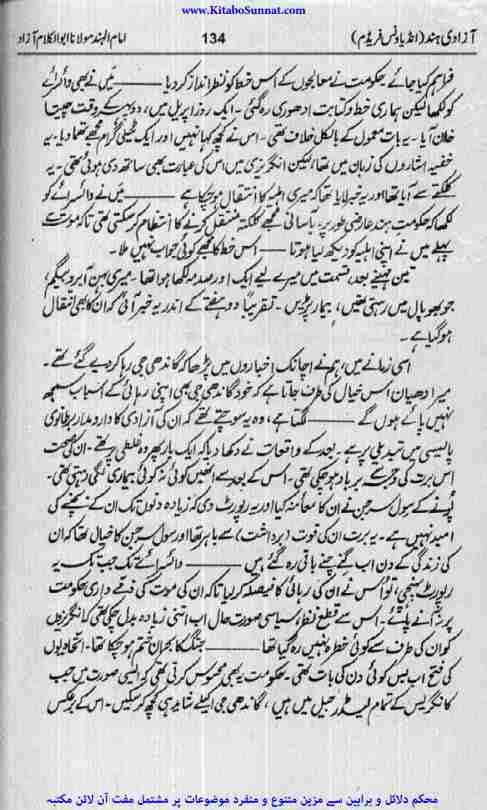 www.KitaboSunnat.com
آزادی ہند (انڈیا ونس فریڈم) 134 امام الہند مولانا ابوالکلام آزاد
فراہم کیا جائے۔ حکومت نے معالجوں کے اس خط کو نظر انداز کر دیا ——— میں نے بھی وائسرائے
کو لکھا لیکن ہماری خط و کتابت ادھوری رہ گئی۔ ایک روز اپریل میں، دوپہر کے وقت چیتا
خان آیا۔ یہ بات معمول کے بالکل خلاف تھی۔ اس نے کچھ کہا نہیں اور ایک ٹیلی گرام مجھے تھما دیا۔ یہ
خفیہ اشاروں کی زبان میں تھا، لیکن انگریزی میں اس کی عبارت بھی ساتھ دی ہوئی تھی۔ یہ
کلکتے سے آیا تھا اور یہ خبر لایا تھا کہ میری اہلیہ کا انتقال ہو چکا ہے ——— میں نے وائسرائے کو
لکھا کہ حکومتِ ہند عارضی طور پر بآسانی مجھے کلکتہ منتقل کرنے کا انتظام کر سکتی تھی تاکہ موت سے
پہلے میں نے اپنی اہلیہ کو دیکھ لیا ہوتا ——— اس خط کا مجھے کوئی جواب نہیں ملا۔
تین مہینے بعد، قسمت میں میرے لیے ایک اور صدمہ لکھا ہوا تھا۔ میری بہن آبرو بیگم،
جو بھوپال میں رہتی تھیں، بیمار پڑیں۔ تقریباً دو ہفتے کے اندر یہ خبر آئی کہ ان کا بھی انتقال
ہو گیا ہے۔
اسی زمانے میں، ہم نے اچانک اخباروں میں پڑھا کہ گاندھی جی رہا کر دیے گئے تھے۔
میرا دھیان اس خیال کی طرف جاتا ہے کہ خود گاندھی جی بھی اپنی رہائی کے اسباب سمجھ
نہیں پائے ہوں گے ——— لگتا ہے، وہ یہ سوچتے تھے کہ ان کی آزادی کا دارومدار برطانوی
پالیسی میں تبدیلی پر ہے۔ بعد کے واقعات نے دکھا دیا کہ ایک بار پھر وہ غلطی پر تھے۔ ان کی صحت
اس برت کی وجہ سے برباد ہو چکی تھی۔ اس کے بعد سے انھیں کوئی نہ کوئی بیماری لگی رہتی تھی۔
پُونے کے سول سرجن نے ان کا معائنہ کیا اور یہ رپورٹ دی کہ زیادہ دنوں تک ان کے بچنے کی
امید نہیں ہے۔ یہ برت ان کی قوت (برداشت) سے باہر تھا اور سول سرجن کا خیال تھا کہ ان
کی زندگی کے دن اب گنے چنے باقی رہ گئے ہیں ——— وائسرائے تک جب یہ
رپورٹ پہنچی، تو اُس نے ان کی رہائی کا فیصلہ کر لیا تاکہ ان کی موت کی ذمے داری حکومت
پر نہ آنے پائے۔ اس سے قطع نظر، سیاسی صورتِ حال اب اتنی زیادہ بدل چکی تھی کہ انگریزوں
کو ان کی طرف سے کوئی خطرہ نہیں رہ گیا تھا ——— جنگ کا بحران ختم ہو چکا تھا۔ اتحادیوں
کی فتح اب بس کوئی دن کی بات تھی۔ حکومت یہ بھی محسوس کرتی تھی کہ ایسی صورت میں جب
کانگریس کے تمام لیڈر جیل میں ہیں، گاندھی جی اکیلے شاید ہی کچھ کر سکیں۔ اس کے برعکس
محکم دلائل و براہین سے مزین متنوع و منفرد موضوعات پر مشتمل مفت آن لائن مکتبہ